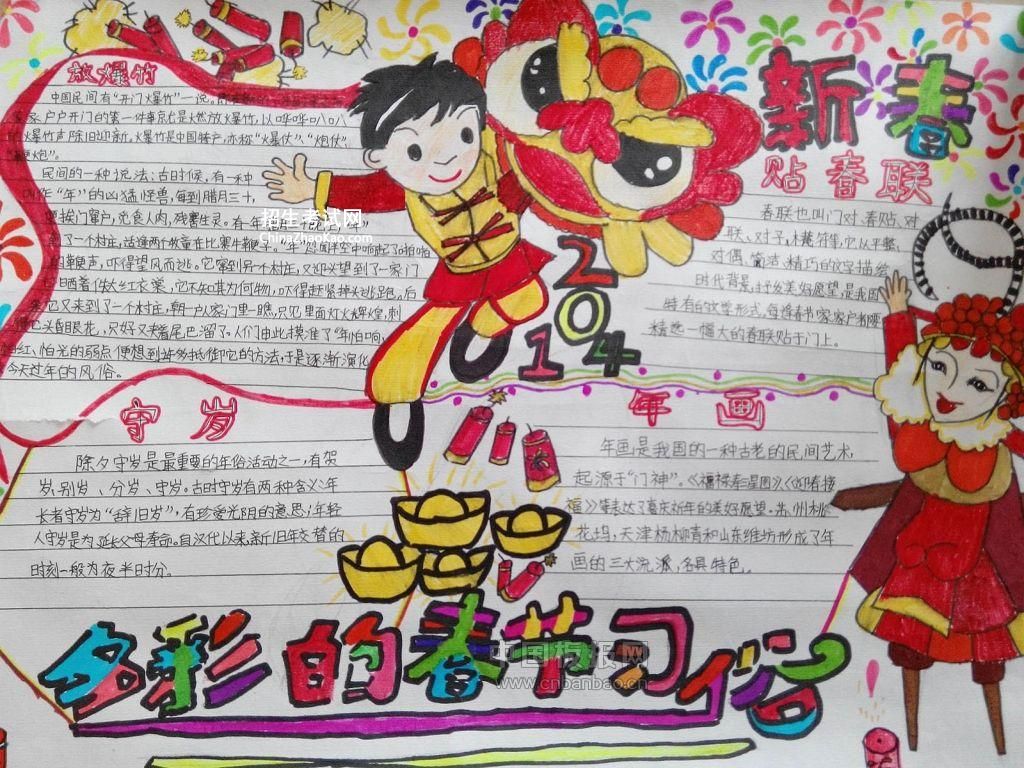 放爆竹
中国民间有“开门爆竹”一说,
户户开门的第一件事就是燃放爆竹,以哔哔叭叭
的爆竹声除旧迎新,爆竹是中国特产,亦称“火暴仗”、“炮仗”、
“鞭炮”。
民间的一种说法:古时候,有一种
“年”的凶猛怪兽,每到腊月三十,
便挨门窜户,觅食人肉,残害生灵。有一年
了一个村庄,适逢两个牧童在比赛牛鞭子。
的鞭声,吓得望风而逃。它窜到另一个村庄,又迎头望到了一家门
晒着件大红衣裳,它不知其为何物,吓得赶紧掉头逃跑。后
来它又来到了一个村庄,朝一户人家门里一瞧,只见里面灯火辉煌,刺
得它头昏眼花,只好夹着尾巴溜了。人们由此摸准了“年怕响,
怕红、怕光的弱点,便想到许多抵御它的方法,于是逐渐演化
今天过年的风俗。
新春
贴春联
春联也叫门对、春贴、对
联、对子,桃符等,它以平整、
对偶、简洁、精巧的文字描绘
时代背景,抒发美好愿望,是我国
特有的文学形式,每逢春节,家家户户都要
精选一幅大的春联贴于门上。
2014
守岁
除夕守岁是最重要的年俗活动之一,有贺
岁、别岁、分岁、守岁。古时守岁有两种含义:年
长者守岁为“辞旧岁”,有珍爱光阴的意思;年轻
人守岁是为延长父母寿命。自汉代以来,新旧年交替的
时刻一般为夜半时分。
年画
年画是我国的一种古老的民间艺术,
起源于“门神”。《福禄寿三星图》《迎春接
福》等表达了喜庆祈年的美好愿望。苏州桃
花坞,天津杨柳青和山东维坊形成了年
画的三大流派,各具特色。
多彩的春节习俗
招生考试网
ChinaZhaokao.com
中国板报网
www.cnbanbao.cn